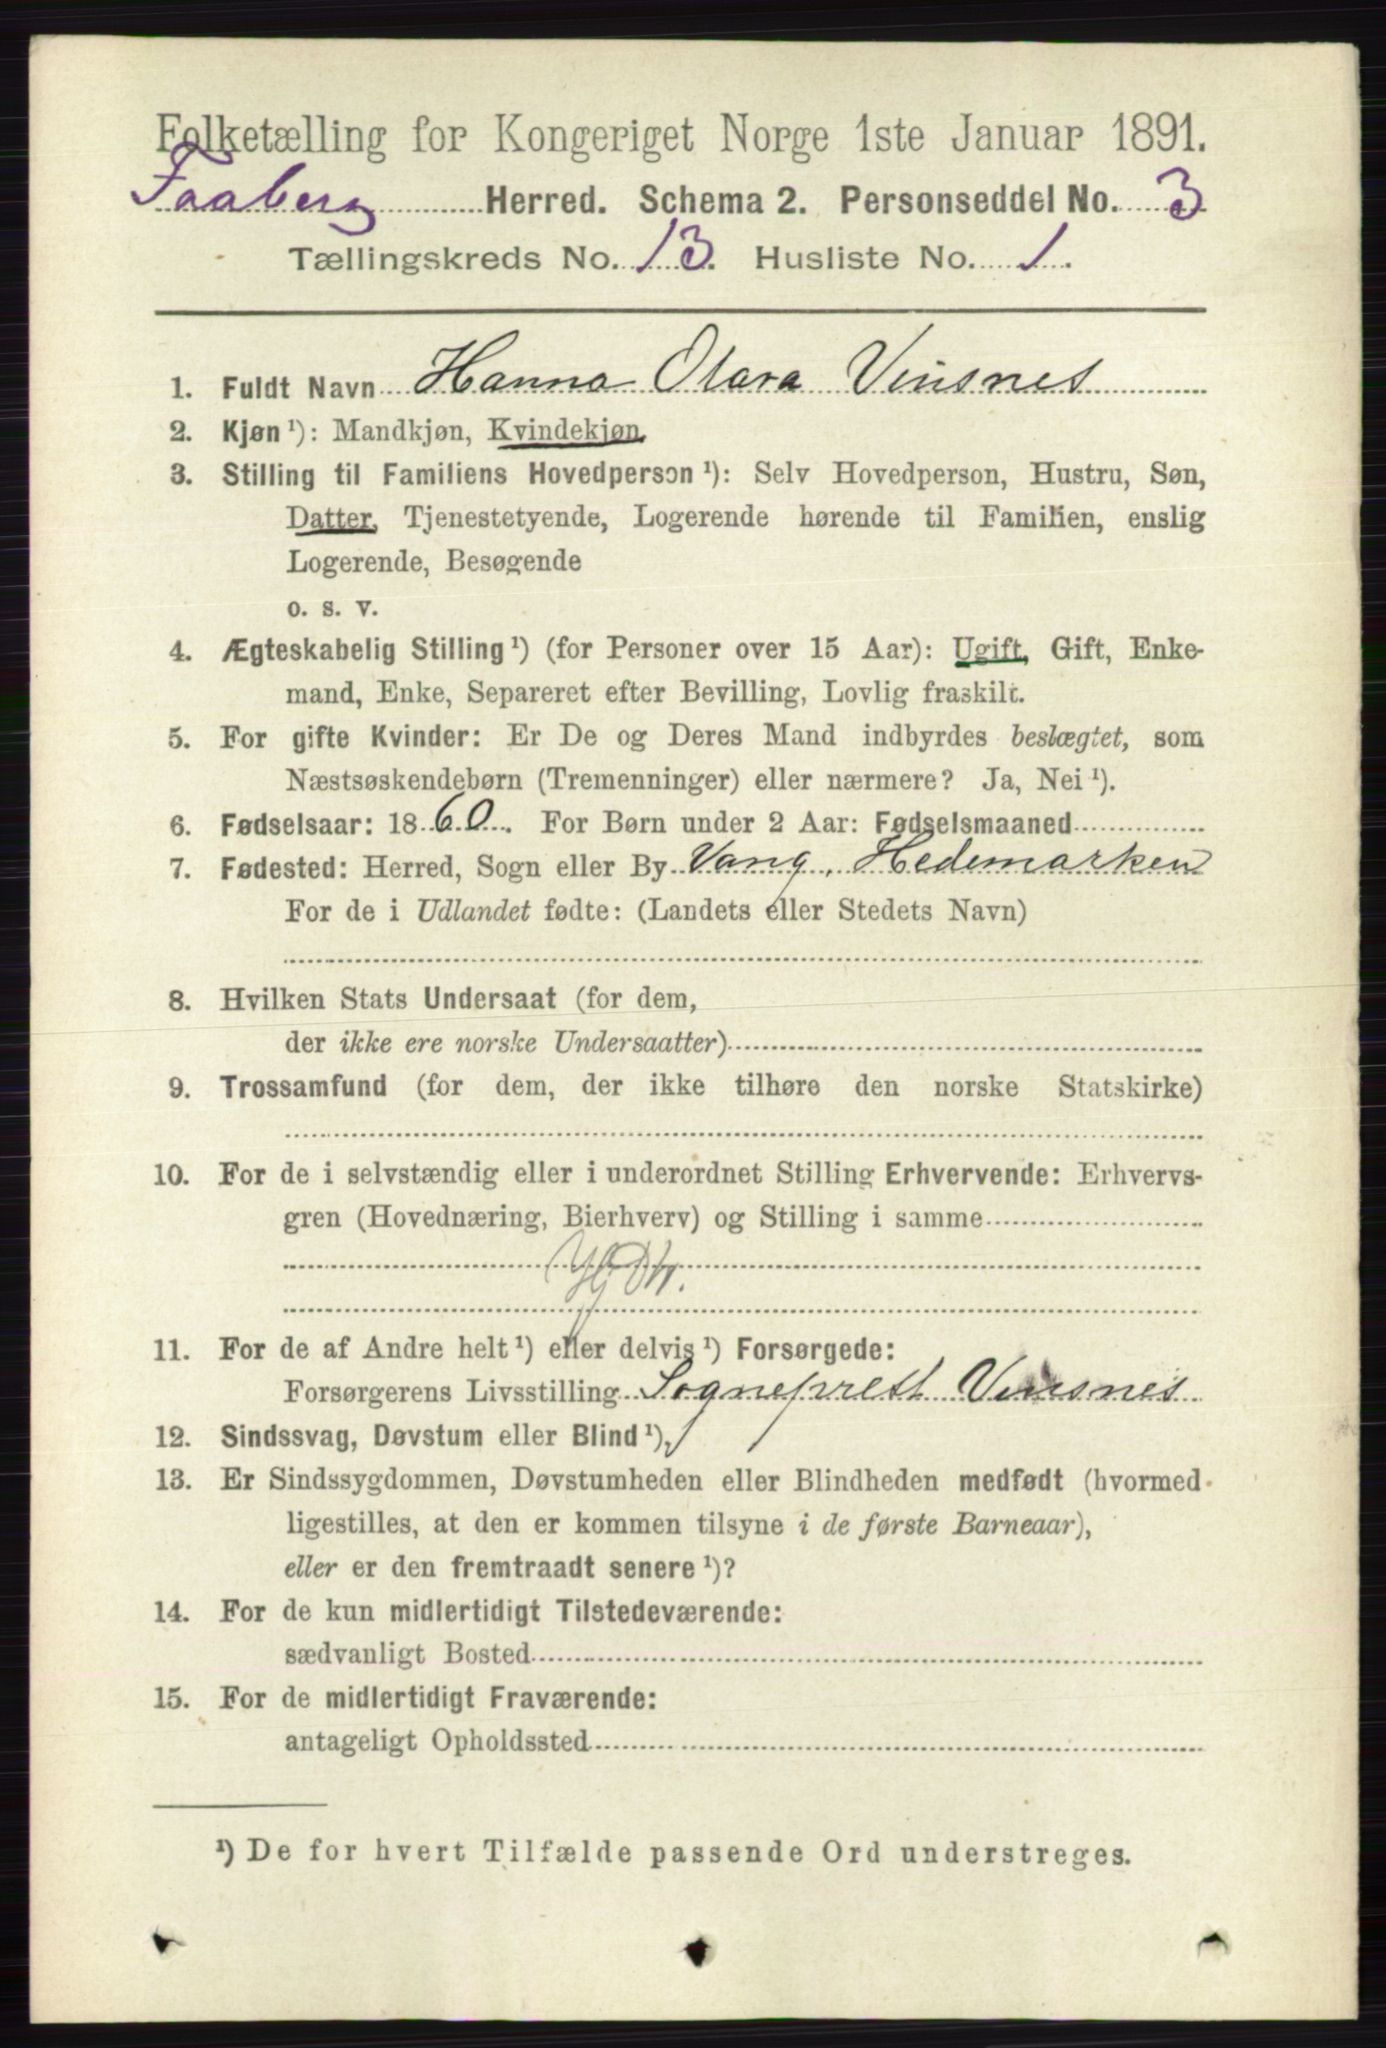 Folketælling for Kongeriget Norge 1ste Januar 1891.
Faaberg Herred. Schema 2. Personseddel No. 3
Tællingskreds No. 13. Husliste No. 1.
1. Fuldt Navn Hanna Olava Vinsnes
2. Kjøn ¹): Mandkjøn, Kvindekjøn.
3. Stilling til Familiens Hovedperson ¹): Selv Hovedperson, Hustru, Søn,
Datter, Tjenestetyende, Logerende hørende til Familien, enslig
Logerende, Besøgende
o. s. v.
4. Ægteskabelig Stilling ¹) (for Personer over 15 Aar): Ugift, Gift, Enke-
mand, Enke, Separeret efter Bevilling, Lovlig fraskilt.
5. For gifte Kvinder: Er De og Deres Mand indbyrdes beslægtet, som
Næstsøskendebørn (Tremenninger) eller nærmere? Ja, Nei ¹).
6. Fødselsaar: 1860. For Børn under 2 Aar: Fødselsmaaned
7. Fødested: Herred, Sogn eller By Vang, Hedemarken
For de i Udlandet fødte: (Landets eller Stedets Navn)
8. Hvilken Stats Undersaat (for dem,
der ikke ere norske Undersaatter)
9. Trossamfund (for dem, der ikke tilhøre den norske Statskirke)
10. For de i selvstændig eller i underordnet Stilling Erhvervende: Erhvervs-
gren (Hovednæring, Bierhverv) og Stilling i samme
11. For de af Andre helt ¹) eller delvis ¹) Forsørgede:
Forsørgerens Livsstilling Sogneprest Vinsnes
12. Sindssvag, Døvstum eller Blind ¹),
13. Er Sindssygdommen, Døvstumheden eller Blindheden medfødt (hvormed
ligestilles, at den er kommen tilsyne i de første Barneaar),
eller er den fremtraadt senere ¹)?
14. For de kun midlertidigt Tilstedeværende:
sædvanligt Bosted
15. For de midlertidigt Fraværende:
antageligt Opholdssted
¹) De for hvert Tilfælde passende Ord understreges.